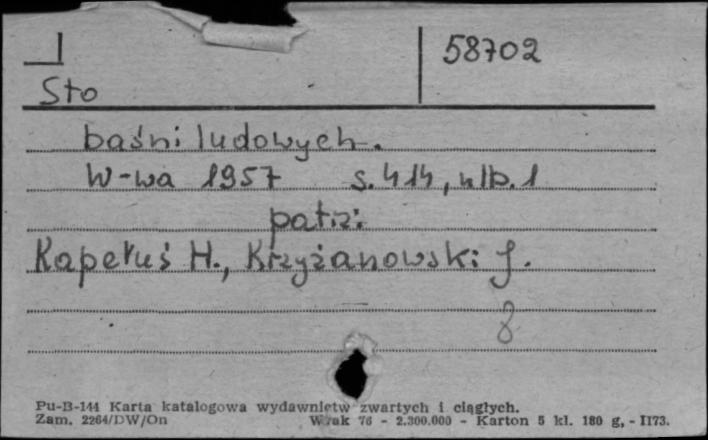 I 58702
Sto
baśni ludowych.
W-wa 1957 s. 414, nlb. 1
patrz:
Kapełuś H., Krzyżanowski J.
8
Pu-B-144 Karta katalogowa wydawnictw zwartych i ciągłych.
Zam. 2264/DW/On 76 - 2.300.000 - Karton 5 kl. 180 g, - II73.